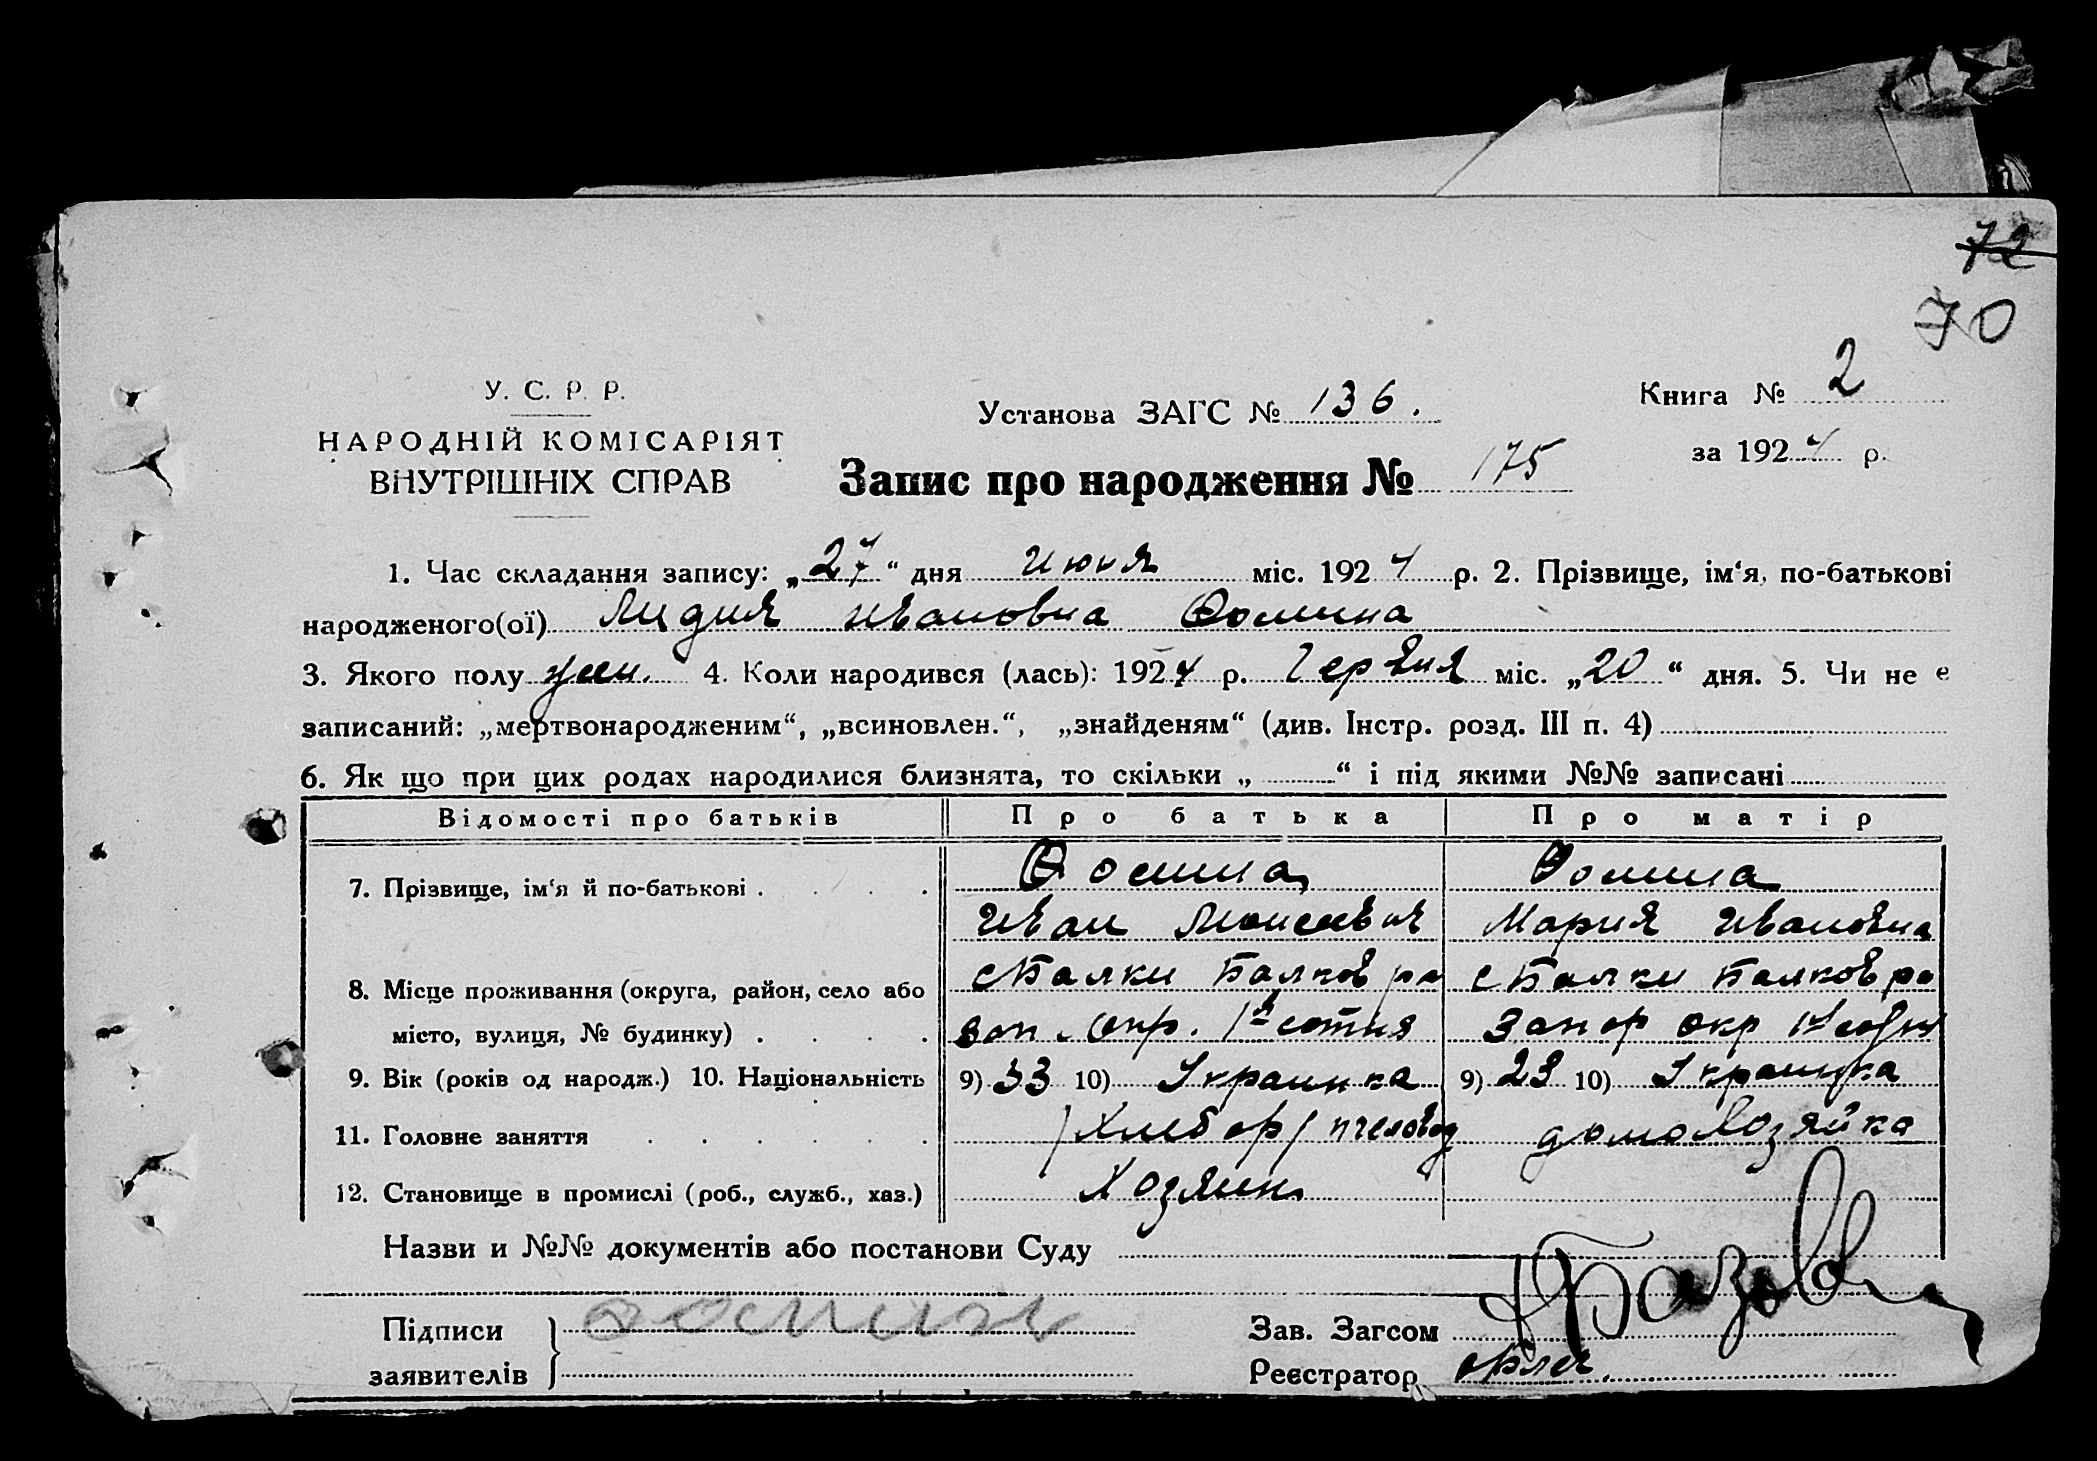 72
70
У. С. Р. Р.
НАРОДНІЙ КОМІСАРІЯТ
ВНУТРІШНІХ СПРАВ
Установа ЗАГС № 136.
Книга № 2
за 1924 р.
Запис про народження № 175
1. Час складання запису: „27“ дня Июня міс. 1924 р. 2. Прізвище, ім‘я, по-батькові
народженого(ої) Лидия Ивановна Ѳомина
3. Якого полу жен. 4. Коли народився (лась): 1924 р. Червня міс. „20“ дня. 5. Чи не е
записаний: „мертвонародженим“, „всиновлен.“, „знайденям“ (див. Інстр. розд. III п. 4)
6. Як що при цих родах народилися близнята, то скільки „ “ і під якими №№ записані
Відомості про батьків Про батька Про матір
7. Прізвище, ім‘я й по-батькові Ѳомина Ѳомина
Иван Моисеевич Мария Ивановна
8. Місце проживання (округа, район, село або с Балки Балков ра с Балки Балков ра
місто, вулиця, № будинку) Зап. Окр. 1я сотня Запор окр 1я сотня
9. Вік (років од народж.) 10. Національність 9) 33 10) Украинка 9) 23 10) Украинка
11. Головне заняття /Хлебор/ пчеловод домохозяйка
12. Становище в промислі (роб., служб., хаз.) Хозяин
Назви и №№ документів або постанови Суду
Підписи
заявителів
Зав. Загсом
Реєстратор